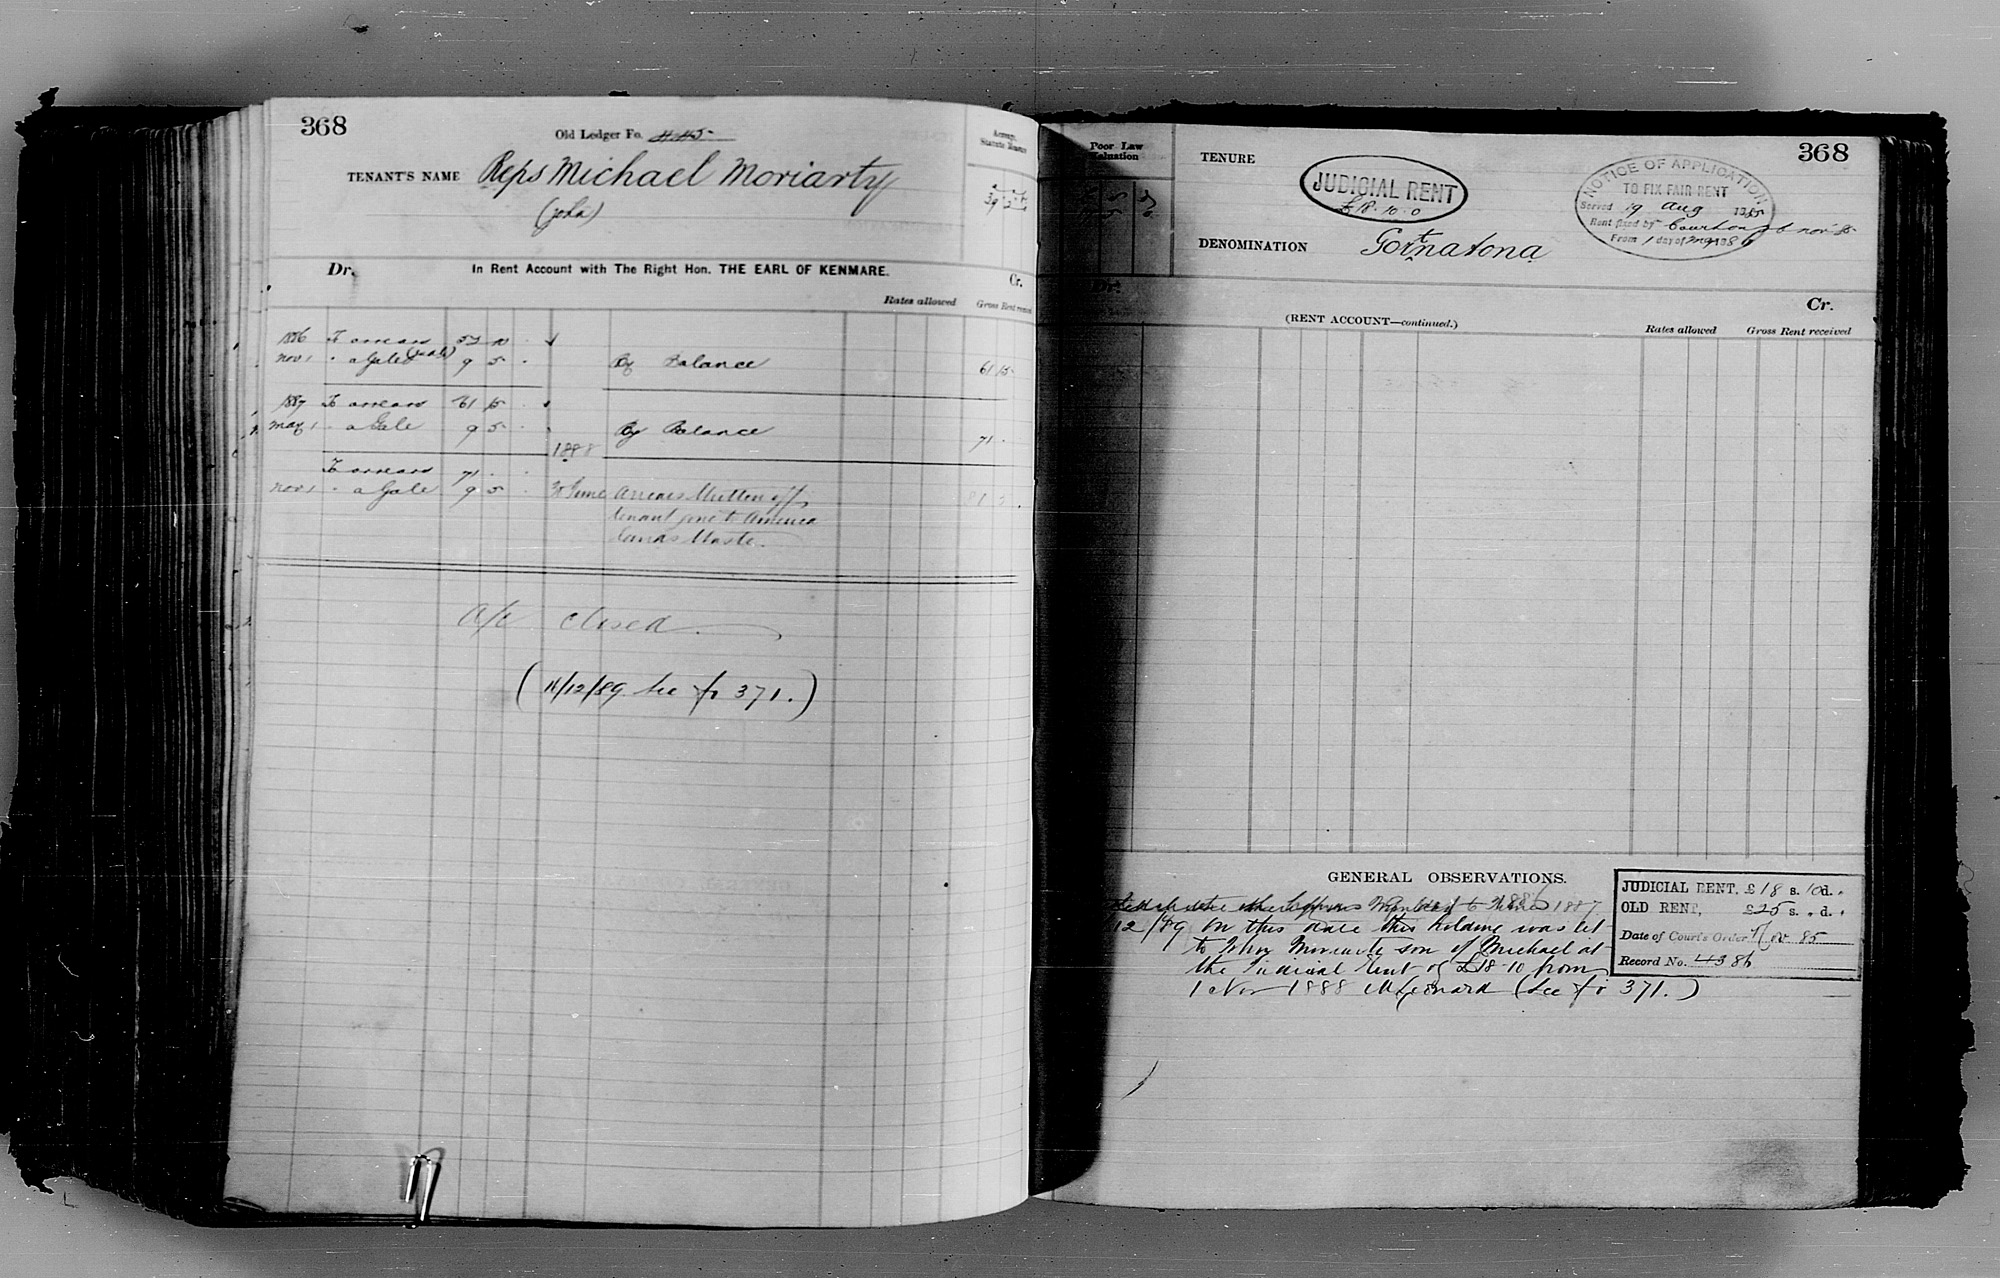 368
Old Ledger Fo. 445
TENANT'S NAME Reps Michael Moriarty
Acreage, Statute Measure
Dr. In Rent Account with The Right Hon. THE EARL OF KENMARE. Cr.
Rates allowed Gross Rent received
1886 To arrears 52 10
Nov 1 " a Gale 9 5 By Balance 61 15
1887 To arrears 61 15
May 1 " a Gale 9 5 By Balance 71
1888
To arrears 71
Nov 1 " a Gale 9 5 30 June Arrears Written off
tenant gone to America
Lands Waste
a/c closed
(11/12/89 See fo 371.)
Poor Law Valuation
TENURE
JUDICIAL RENT
£18.10.0
NOTICE OF APPLICATION
TO FIX FAIR RENT
Served 19 Aug 1885
Rent fixed by Court on 6 Nov 85
From 1 day of
368
DENOMINATION Gortnatona
Dr. Cr.
(RENT ACCOUNT—continued.)
Rates allowed Gross Rent received
GENERAL OBSERVATIONS.
1887
12/89 On this date this holding was let
to John Moriarty son of Michael at
the Judicial Rent of £18-10 from
1 Nov 1888 MLeonard (See fo 371.)
JUDICIAL RENT, £18 s. 10 d.
OLD RENT, £25 s. d.
Date of Court's Order Nov 85
Record No. 4386